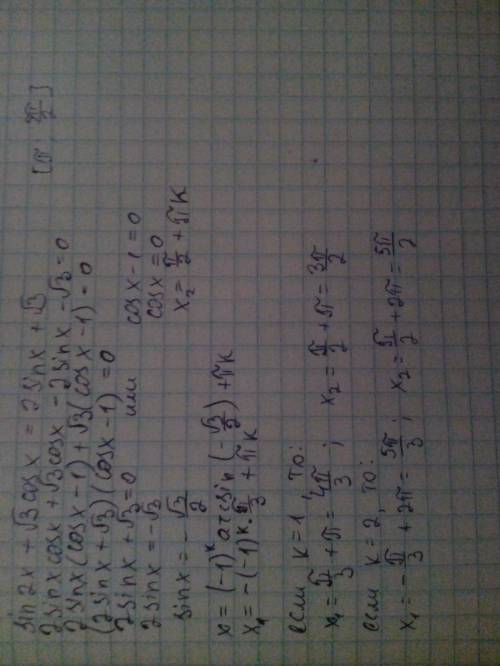 sin2x + √3 cosx = 2 sinx + √3 [π; 5π/2]
2 sinx cosx + √3 cosx - 2 sinx - √3 = 0
2 sinx (cosx - 1) + √3 (cosx - 1) = 0
(2 sinx + √3)(cosx - 1) = 0
2 sinx + √3 = 0 или cosx - 1 = 0
2 sinx = -√3 cosx = 0
sinx = -√3/2 x₂ = π/2 + πk
x = (-1)ᵏ arcsin (-√3/2) + πk
x₁ = -(-1)ᵏ · π/3 + πk
если k = 1, то:
x₁ = π/3 + π = 4π/3 ; x₂ = π/2 + π = 3π/2
если k = 2, то:
x₁ = -π/3 + 2π = 5π/3 ; x₂ = π/2 + 2π = 5π/2